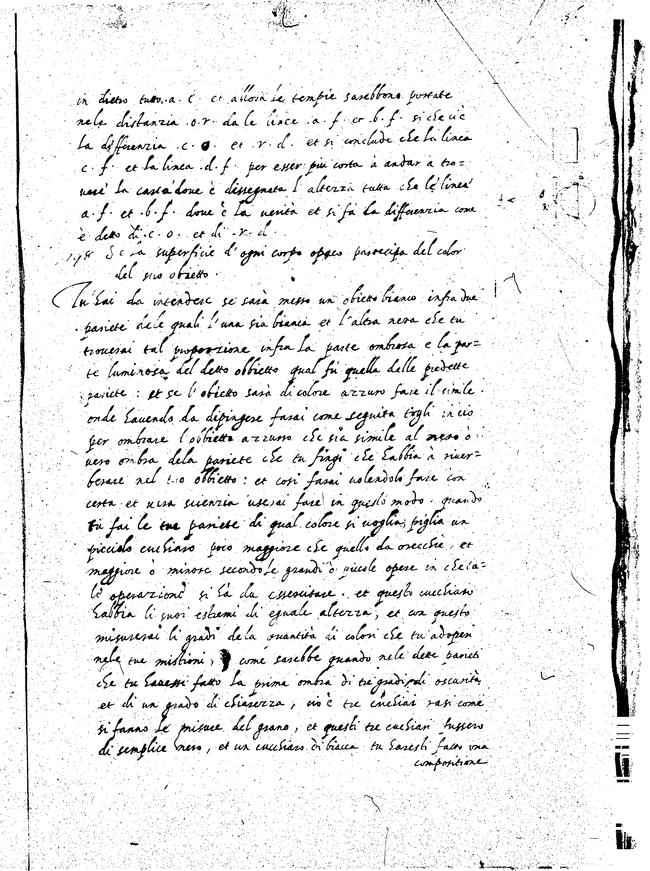 in dietro tutto .a. c. et allora le tempie sarebbono portate
nela distanzia .o.r. da le linee .a. f. et .b. f. si che ui è
la differenzia .c. o. et .r. d. et si conclude che la linea
c. f. et la linea .d. f. per esser piu corta à andar a tro=
uare la carta doue è dissegnata l altezza tutta che le linea
a. f. et .b. f. doue è la uerità et si fà la differenzia come
è detto di .c. o. et di .r. d.
198 De la superficie d'ogni corpo opaco partecipa del color
del suo obietto.
Tu hai da intendere se sarà messo un obietto bianco infra due
pariete dele quali l'una sia bianca et l'altra nera che tu
trouerai tal proporzione infra la parte ombrosa e la par=
te luminosa del detto obbietto qual fù quella delle predette
pariete : et se l'obietto sarà di colore azzuro fare il simile.
onde hauendo da dipingere farai come seguita togli in ciò
per ombrare l'obbietto azzurro che sia simile al nero ò
uero ombra dela pariete che tu fingi che habbia à riuer=
berare nel tuo obbietto : et cosi farai uolendolo fare con
certa et uera scienzia userai fare in questo modo. quando
tu fai le tue pariete di qual colore si uoglia, piglia un
picciolo cuchiaro poco maggiore che quello da orecchie, et
maggiore ò minore secondo le grandi ò picole opere in che ta=
le operazione si hà da essercitare. et questo cucchiaro
habbia li suoi estremi di eguale altezza, et con questo
misurerai li gradi dela quantità di colori che tu adoperi
nele tue mistioni, come sarebbe quando nele dette parieti
che tu hauessi fatto la prima ombra di tre gradi di oscurità,
et di un grado di chiarezza, ciò è tre cuchiari rasi come
si fanno le misure del grano, et questi tre cuchiari fussero
di semplice nero, et un cucchiaro di biacca tu haresti fatto una
compositione